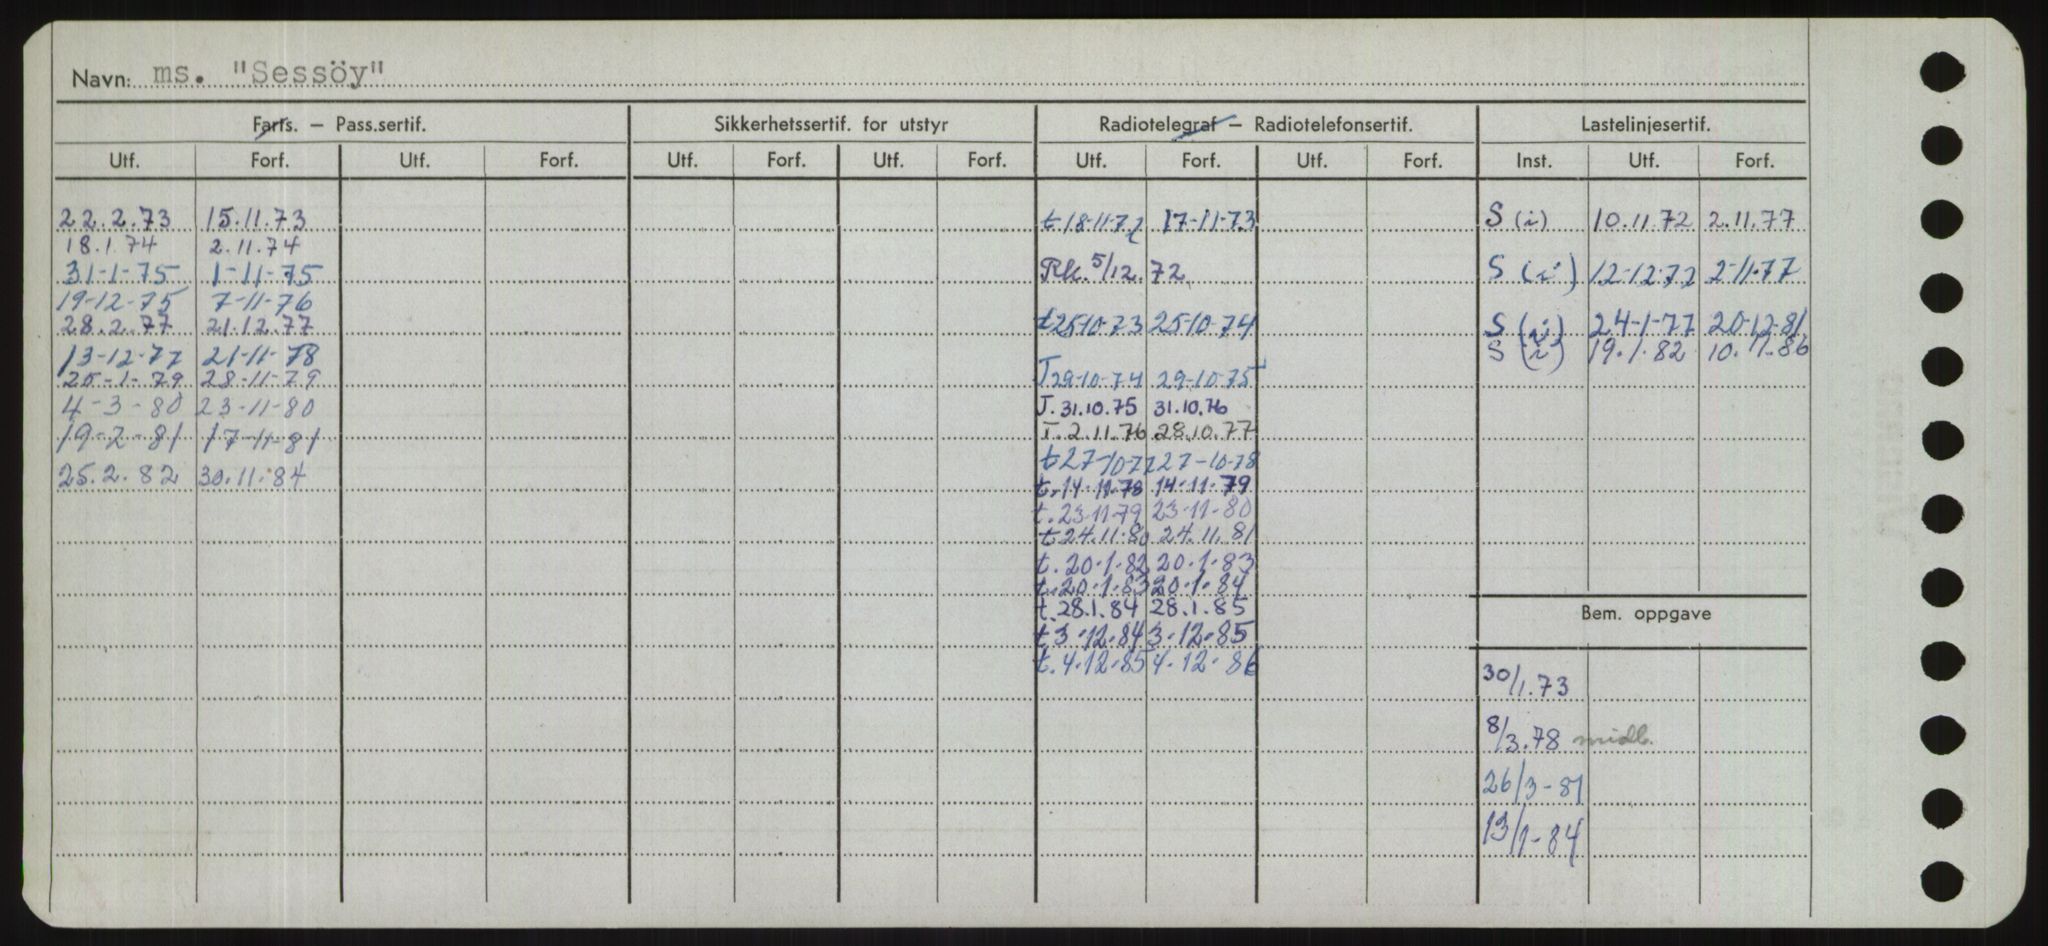 Navn: ms. "Sessöy"
Farts. — Pass.sertif. Sikkerhetssertif. for utstyr Radiotelegraf — Radiotelefonsertif. Lastelinjesertif.
Utf. Forf. Utf. Forf. Utf. Forf. Utf. Forf. Utf. Forf. Utf. Forf. Inst. Utf. Forf.
22.2.73 15.11.73
18.1.74 2.11.74
31-1-75 1-11-75
19-12-75 7-11-76
28.2.77 21.12.77
13-12-77 21-11-78
25-1-79 28-11-79
4-3-80 23-11-80
19-2-81 17-11-81
25.2.82 30.11.84
t 18-11-72 17-11-73
Rk. 5/12.72
t 25-10-73 25-10-74
T 29-10-74 29-10-75
J. 31.10.75 31.10.76
T. 2.11.76 28.10.77
t 27-10-77 27-10-78
t. 14-11-78 14-11-79
t. 23-11-79 23-11-80
t 24.11.80 24.11.81
t. 20.1.82 20.1.83
t. 20.1.83 20.1.84
t. 28.1.84 28.1.85
t. 3.12.84 3.12.85
t. 4.12.85 4.12.86
S (i) 10.11.72 2.11.77
S (i) 12-12-72 2-11-77
S (i) 24-1-77 20-12-81
S (i) 19.1.82 10.11.86
Bem. oppgave
30/1.73
8/3.78 midl.
26/3-81
13/1-84